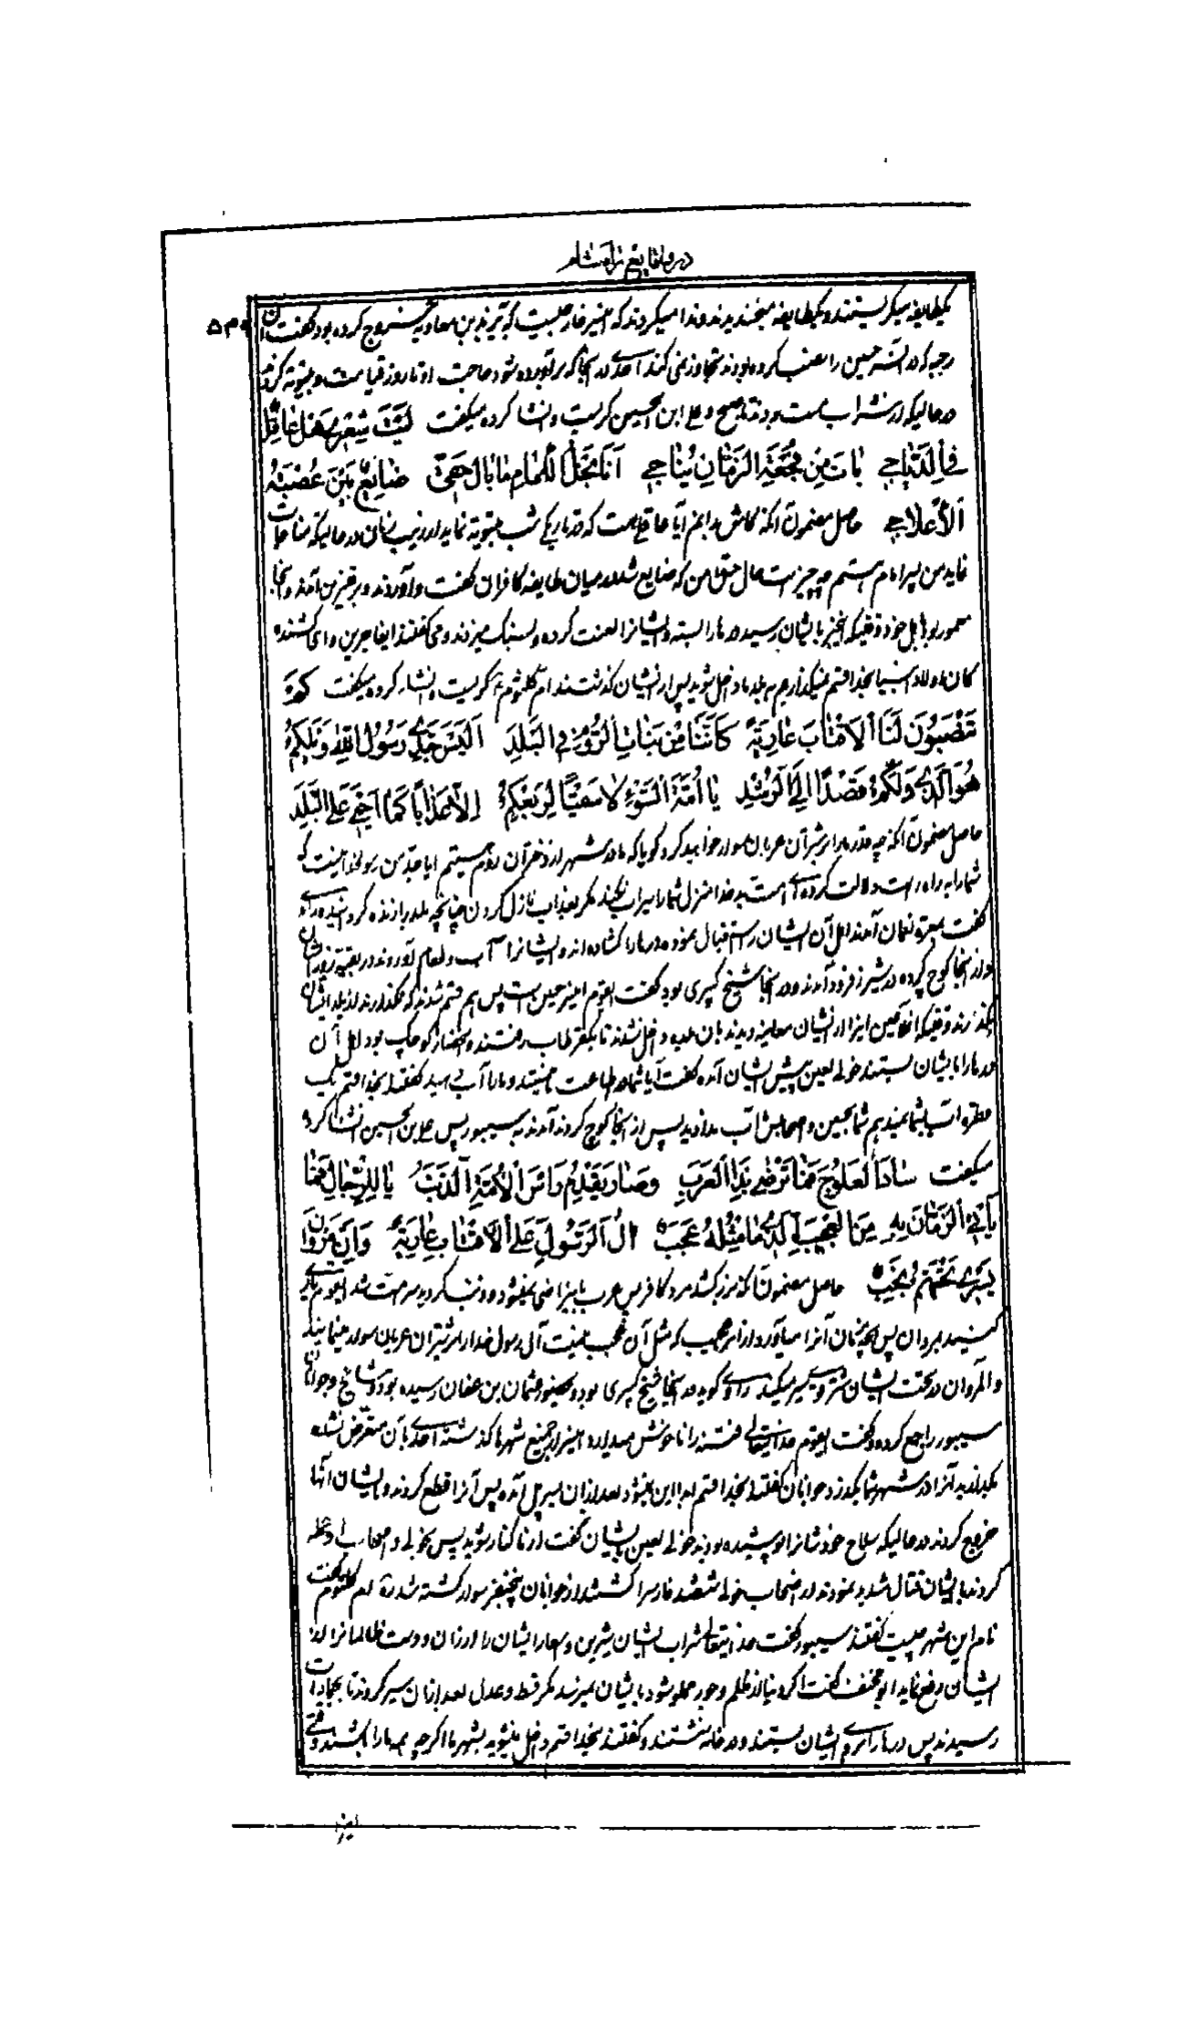 در وقایع راه شام
۵۳۹
یکطایفه میگریستند و یکطایفه میخندیدند و ندا میکردند که اینسر خارجیست که بر یزید بن معاویه خروج کرده بود گفت آن
رحبه که در آن سر حسین را نصب کرده بودند تجاوز نمی کند احدی در آنجا که برآورده شود حاجت او تا روز قیامت و بیتوته کردند
در حالیکه از شراب مست بودند تا صبح و علی ابن الحسین گریست و انشا کرده میگفت لَیْتَ شِعْری هَلْ عاقِلٌ
فِی الدَّیاجی باتَ مِنْ فُجْعَةِ الزَّمانِ یُناجی اَنَا نَجْلُ الْاِمامِ ما بالُ حَقّی ضایِعٌ بَیْنَ عُصْبَةِ
الْاَعْلاجِ حاصل مضمون آنکه کاش میدانستم آیا عاقلی هست که در تاریکی شب بیتوته نماید از مصیبت زمان در حالیکه مناجات
نماید من پسر امام هستم چه چیز است حال حق من که ضایع شده در میان طایفه کافران گفت و آوردند و بر قنسرین آمدند و آنجا
معمور بود باهل خود وقتیکه اینخبر بایشان رسید درها را بسته و ایشانرا لعنت کرده و بسنگ میزدند و می گفتند ای فاجرین و ای کشنده
کان اولاد انبیا بخدا قسم نمیگذاریم به بلد ما داخل شوید پس از ایشان گذشتند ام کلثوم گریست و انشاء کرده میگفت کَمْ
تَنْصِبُونَ لَنَا الْاَقْتابَ عارِیَةً کَاَنَّنا مِنْ بَناتِ الرُّومِ فِی الْبَلَدِ اَلَیْسَ جَدّی رَسُولُ اللهِ وَیْلَکُمْ
هُوَ الَّذی دَلَّکُمْ قَصْدًا اِلَی الرُّشْدِ یا اُمَّةَ السُّوءِ لا سَقْیًا لِرَبْعِکُمْ اِلَّا عَذابًا کَما اَخْنی عَلَی الْبَلَدِ
حاصل مضمون آنکه چه قدر ما را بر شتران عریان سوار خواهید کرد گویا که ما در شهر از دختران روم هستیم ایا جد من رسول خدا نیست که
شما را به راه راست دلالت کرده
گفت بمعرة نعمان آمدند اهل آن ایشان را استقبال نموده درها را گشاده اند و ایشانرا آب و طعام آوردند و بقیه روز آن
و از آنجا کوچ کرده در شیزر فرود آمدند و در آنجا شیخ کبیری بود گفت ایقوم اینسر حسین است پس هم قسم شدند که نگذارند از بلد ایشان
بگذرند وقتیکه آن ملاعین اینرا از ایشان معاینه دیدند بآن بلده داخل نشدند تا بکفر طاب رفتند و حصار کوچک بود اهل آن
درها را بایشان بستند خولی لعین پیش ایشان آمده گفت آیا شما در طاعت ما نیستید و ما را آب بدهید گفتند بخدا قسم یک
قطره آب بشما نمیدهیم شما بحسین و اصحابش آب ندادید پس از آنجا کوچ کردند آمدند به سیبور پس علی بن الحسین انشا کرد
میگفت سادَ الْعُلُوجُ فَما تَرْضی بِذَا الْعَرَبُ وَصارَ یَقْدُمُ رَاْسَ الْاُمَّةِ الذَّنَبُ یا لَلرِّجالِ فَما
یَاْتی الزَّمانُ بِهِ مِنَ الْعَجیبِ الَّذی ما مِثْلُهُ عَجَبُ آلُ الرَّسُولِ عَلَی الْاَقْتابِ عارِیَةً وَآلُ مَرْوانَ
یَسْری تَحْتَهُمْ نُجُبُ حاصل مضمون آنکه بزرگ شد مرد کافر پس عرب باین راضی نمیشود و ذنب کردید سر امت شد ایقوم
کنید ای مردان پس به چه زمان آنرا میآورد از امر عجیب که مثل آن عجب نیست آل رسول خدا را بر شتران عریان سوار مینمایند
و آل مروان در تحت ایشان شتر سیر میکند راوی گوید در آنجا شیخ کبیری بود و بحضور عثمان بن عفان رسیده بود و مشایخ و جوانان
سیبور را جمع کرده و گفت ایقوم خدایتعالی فتنه را ناخوش میدارد اینسر از جمیع شهرها گذشته احدی بآن متعرض نشده
بگذارید آنرا در شهر شما بگذرد جوانان گفتند بخدا قسم ابدا این نمیشود بعد از آن سر پل آمده پس آنرا قطع کردند و بایشان آنها
خروج کردند در حالیکه سلاح خودشانرا پوشیده بودند خولی لعین بایشان گفت از ما کنار شوید پس بخولی و اصحاب او حمله
کردند بایشان قتال شدید نمودند از اصحاب خولی ششصد فارس را کشتند از جوانان پنجنفر سوار کشته شدند ام کلثوم گفت
نام این شهر چیست گفتند سیبور گفت خدایتعالی شراب ایشان شیرین و اسعار ایشان را ارزان و دست ظالمانرا از
ایشان دفع نماید ابو مخنف گفت اگر دنیا از ظلم و جور مملو شود بایشان نمیرسد مگر قسط و عدل بعد از آن سیر کردند تا بحما
رسیدند پس درها را بروی ایشان بستند و در خانه نشستند و گفتند بخدا قسم داخل نمیشوید بشهر ما اگر چه همه ما را بکشند وقتی